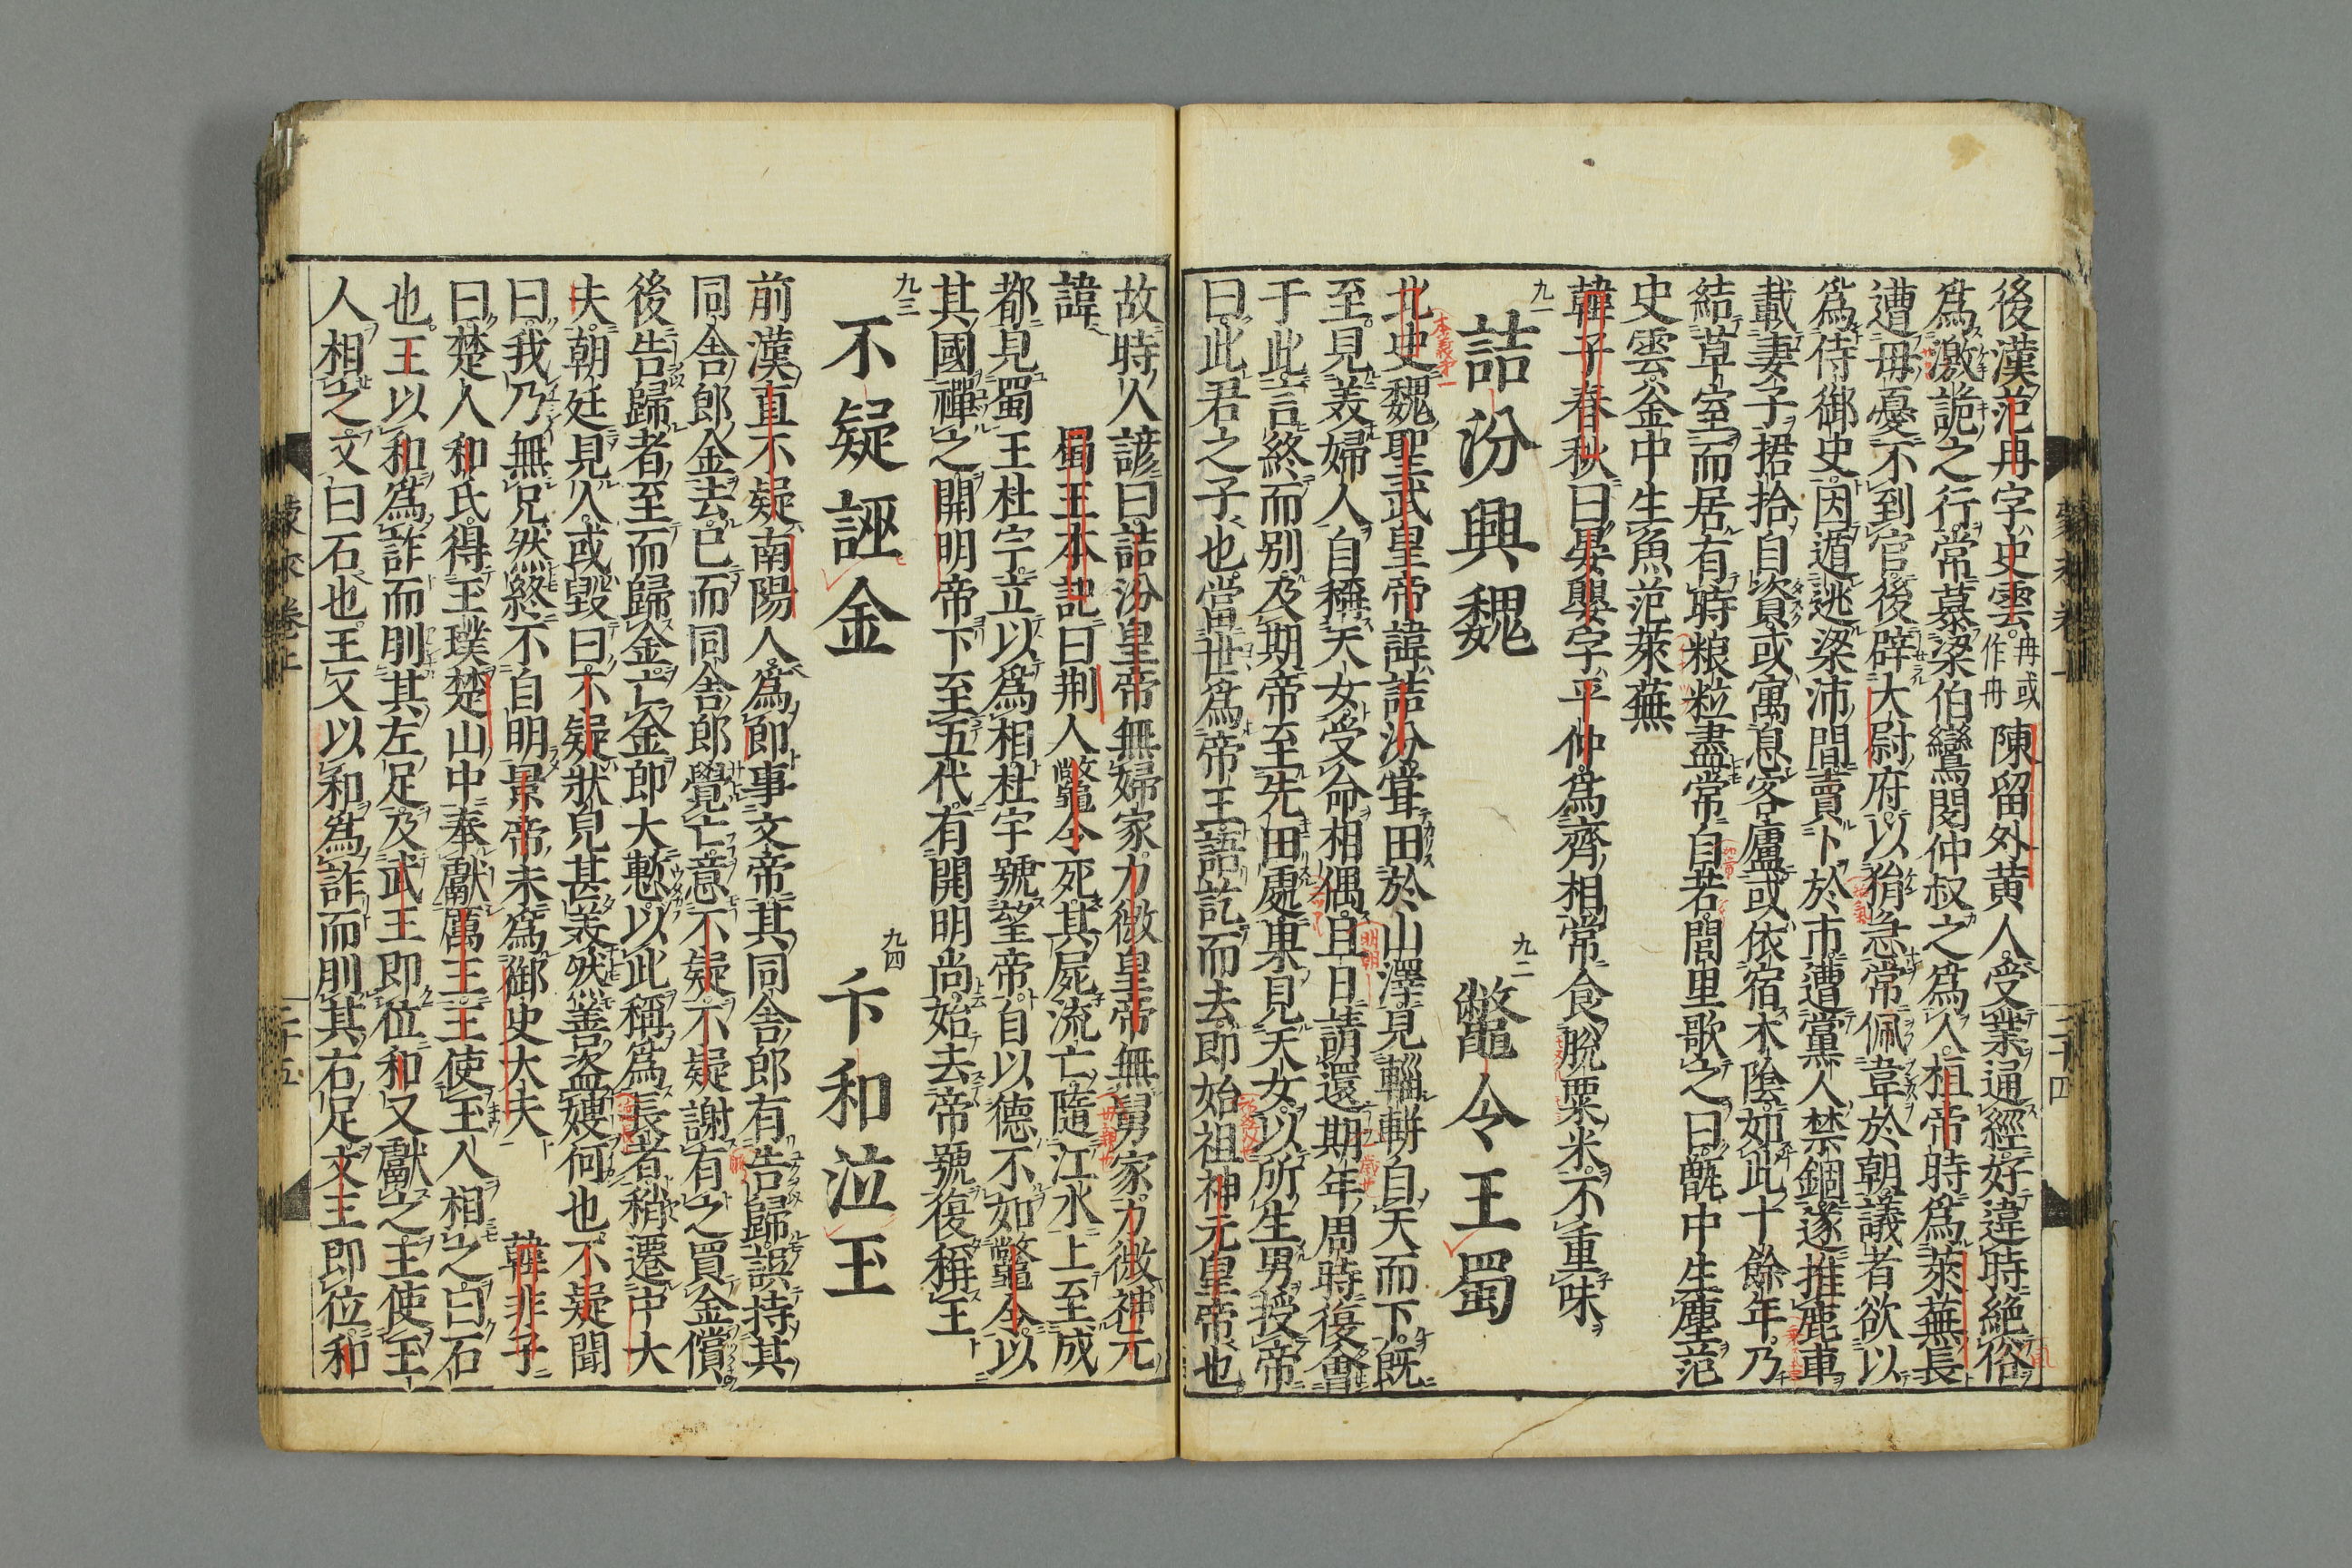 後漢范冉字史雲冉或作冉陳留外黄人受業通經好違時絶俗
爲激詭之行常慕梁伯鸞閔仲叔之爲人桓帝時爲萊蕪長
遭母憂不到官後辟大尉府以狷急常佩韋於朝議者欲以
爲侍御史因遁逃梁沛間賣卜於市遭黨人禁錮遂推鹿車
載妻子捃拾自資或寓息客廬或依宿木陰如此十餘年乃
結草室而居有時粮粒盡常自若閭里歌之曰甑中生塵范
史雲金中生魚范萊蕪
韓子春秋曰晏嬰字平仲爲齊相常食脫粟米不重味
九一 詰汾興魏 九二 鱉令王蜀
北史魏聖武皇帝諱詰汾甞田於山澤見輜軿自天而下既
至見美婦人自稱天女受命相偶旦日請還期年周時復會
于此言終而別及期帝至先田處果見天女以所生男授帝
曰此君之子也當世爲帝王語訖而去即始祖神元皇帝也
故時人諺曰詰汾皇帝無婦家力微皇帝無舅家力微神元
諱 蜀王本記曰荆人鼈令死其屍流亡隨江水上至成
都見蜀王杜宇立以爲相杜宇號望帝自以德不如鼈令以
其國禪之開明帝下至五代有開明尚始去帝號復稱王
九三 不疑誣金 九四 卞和泣玉
前漢直不疑南陽人爲郎事文帝其同舍郎有告歸誤持其
同舍郎金去已而同舍郎覺亡意不疑不疑謝有之買金償
後告歸者至而歸金亡金郎大慙以此稱爲長者稍遷中大
夫朝廷見人或毀曰不疑狀皃甚美然善盜嫂何也不疑聞
曰我乃無兄然終不自明景帝末爲御史大夫 韓非子
曰楚人和氏得玉璞楚山中奉獻厲王王使玉人相之曰石
也王以和爲詐而刖其左足及武王即位和又獻之王使玉
人相之又曰石也王又以和爲詐而刖其右足文王即位和
蒙求卷上 二十四
蒙求卷上 二十五